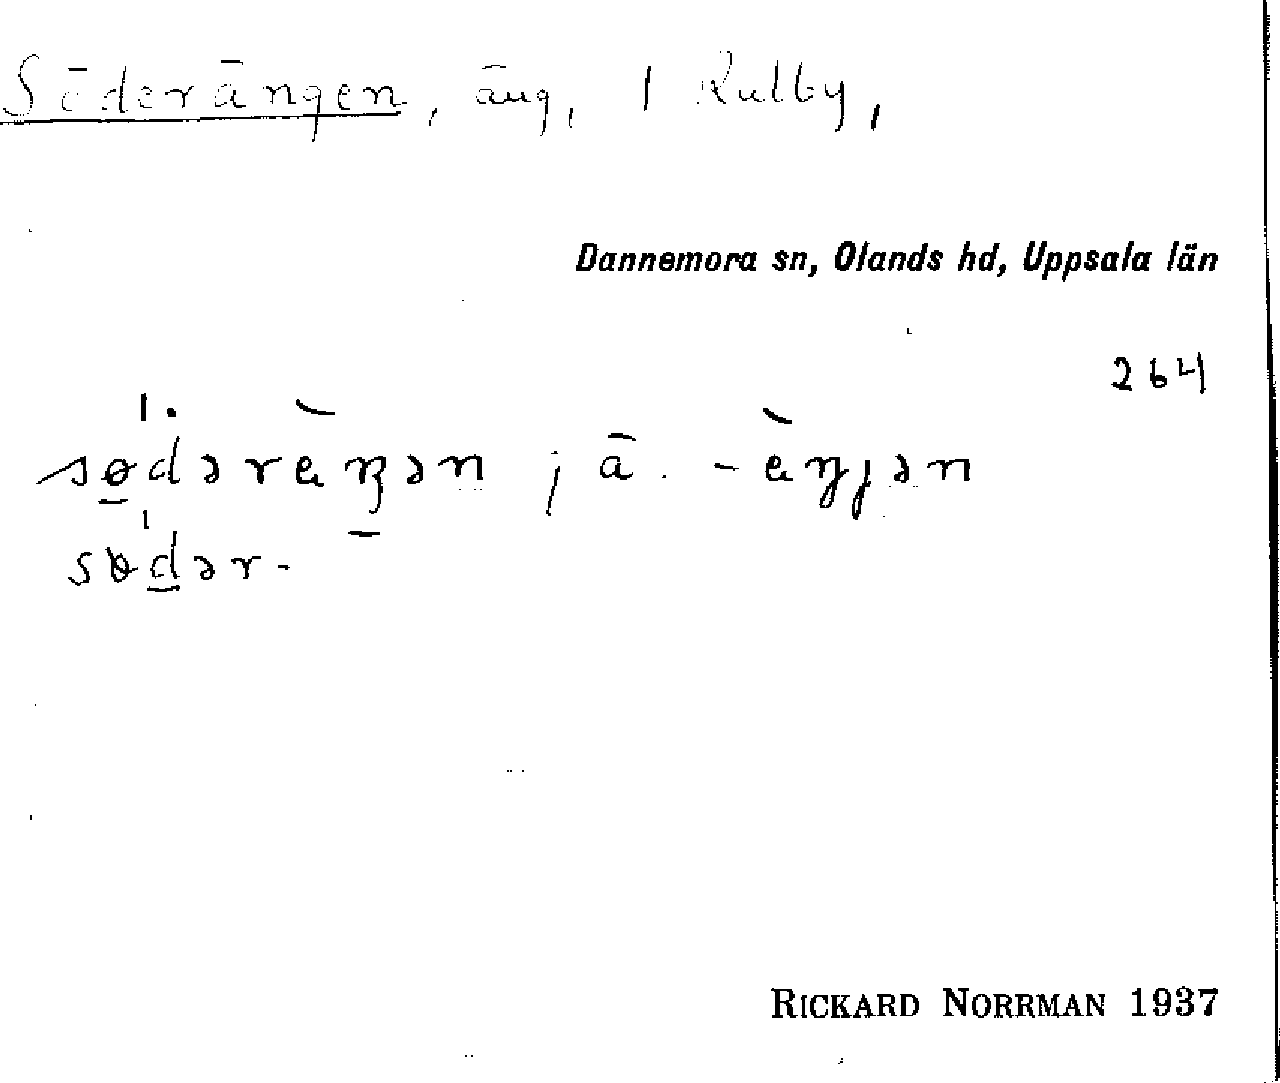 Söderängen, äng, 1 Kulby,
Dannemora sn, Olands hd, Uppsala län
264
sɵdərèŋən ; ä. -èŋɟən
sɵdər-
RICKARD NORRMAN 1937